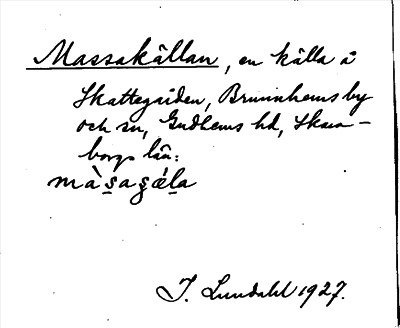 Massakällan, en källa å
Skattegården, Brunnhems by
och sn, Gudhems hd, Skara-
borgs län:
màs̲aʂǽl̲a
I. Lundahl 1927.